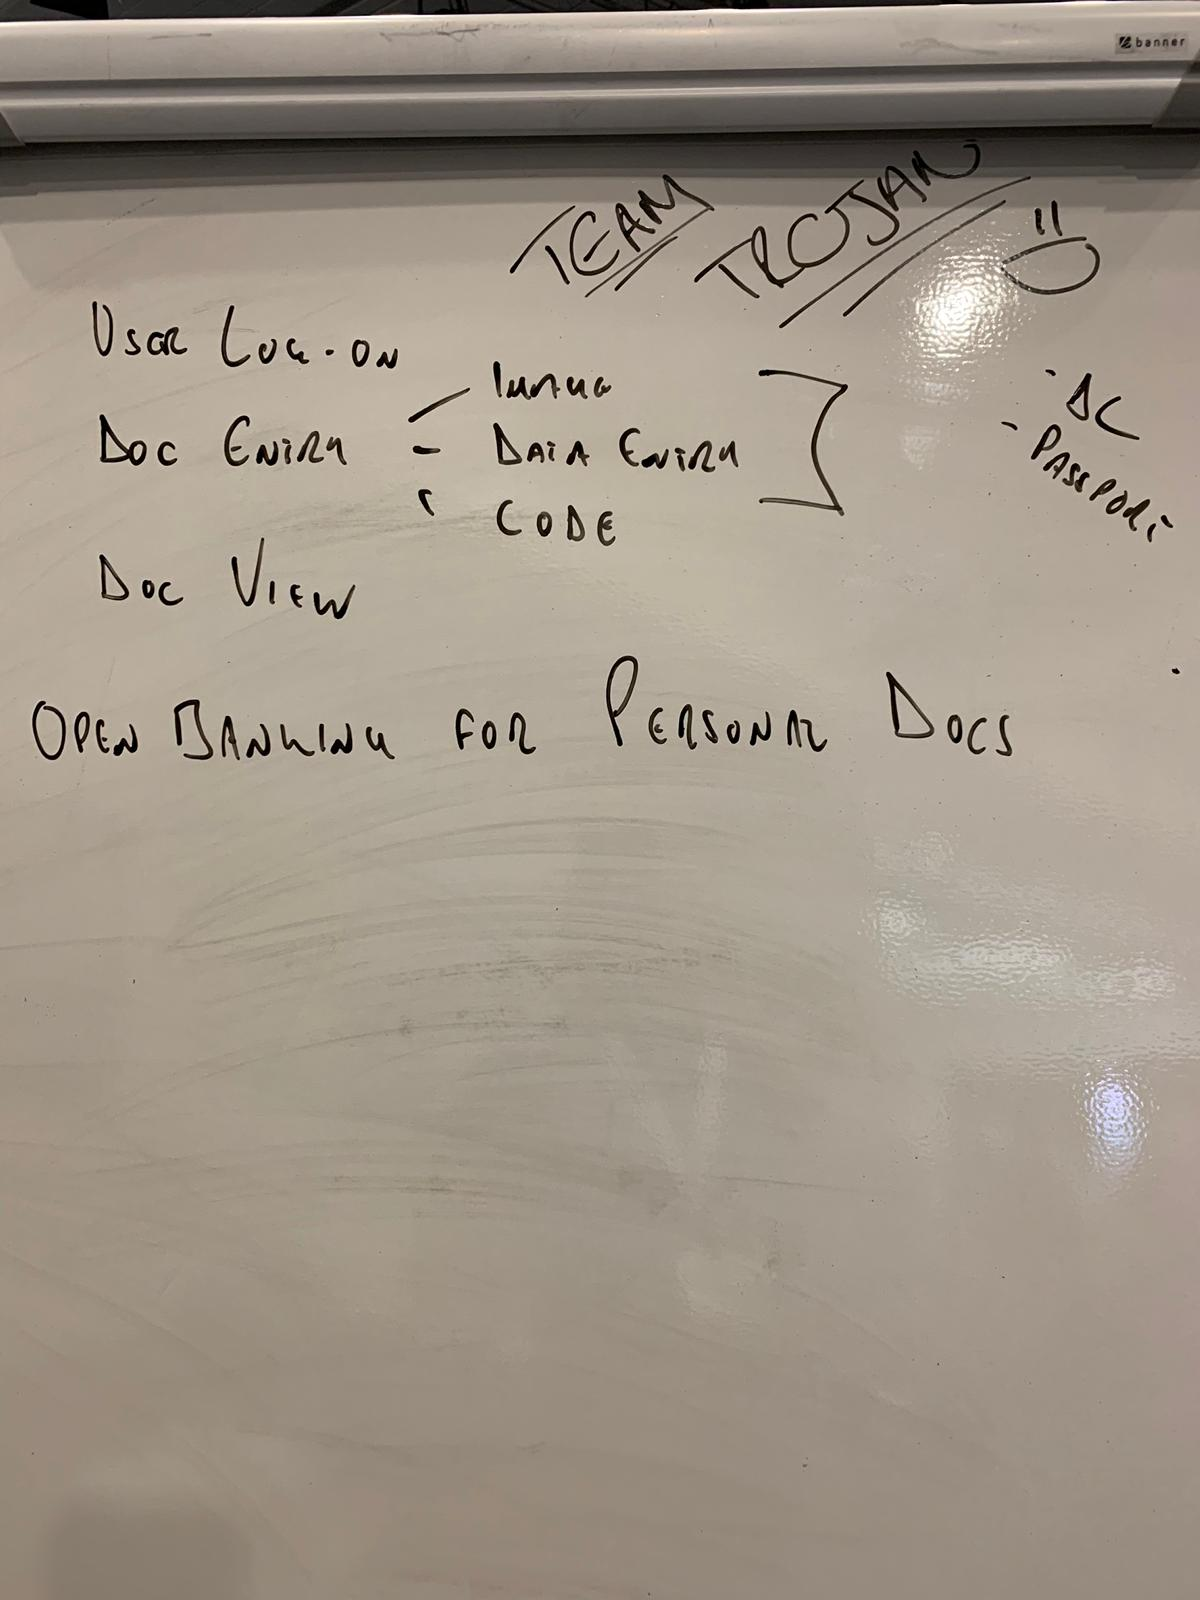 banner
TEAM TROJAN
USER LOG-ON
DOC ENTRY
- IMAGE
- DATA ENTRY
- CODE
- DC
- PASSPORT
DOC VIEW
OPEN BANKING FOR PERSONAL DOCS